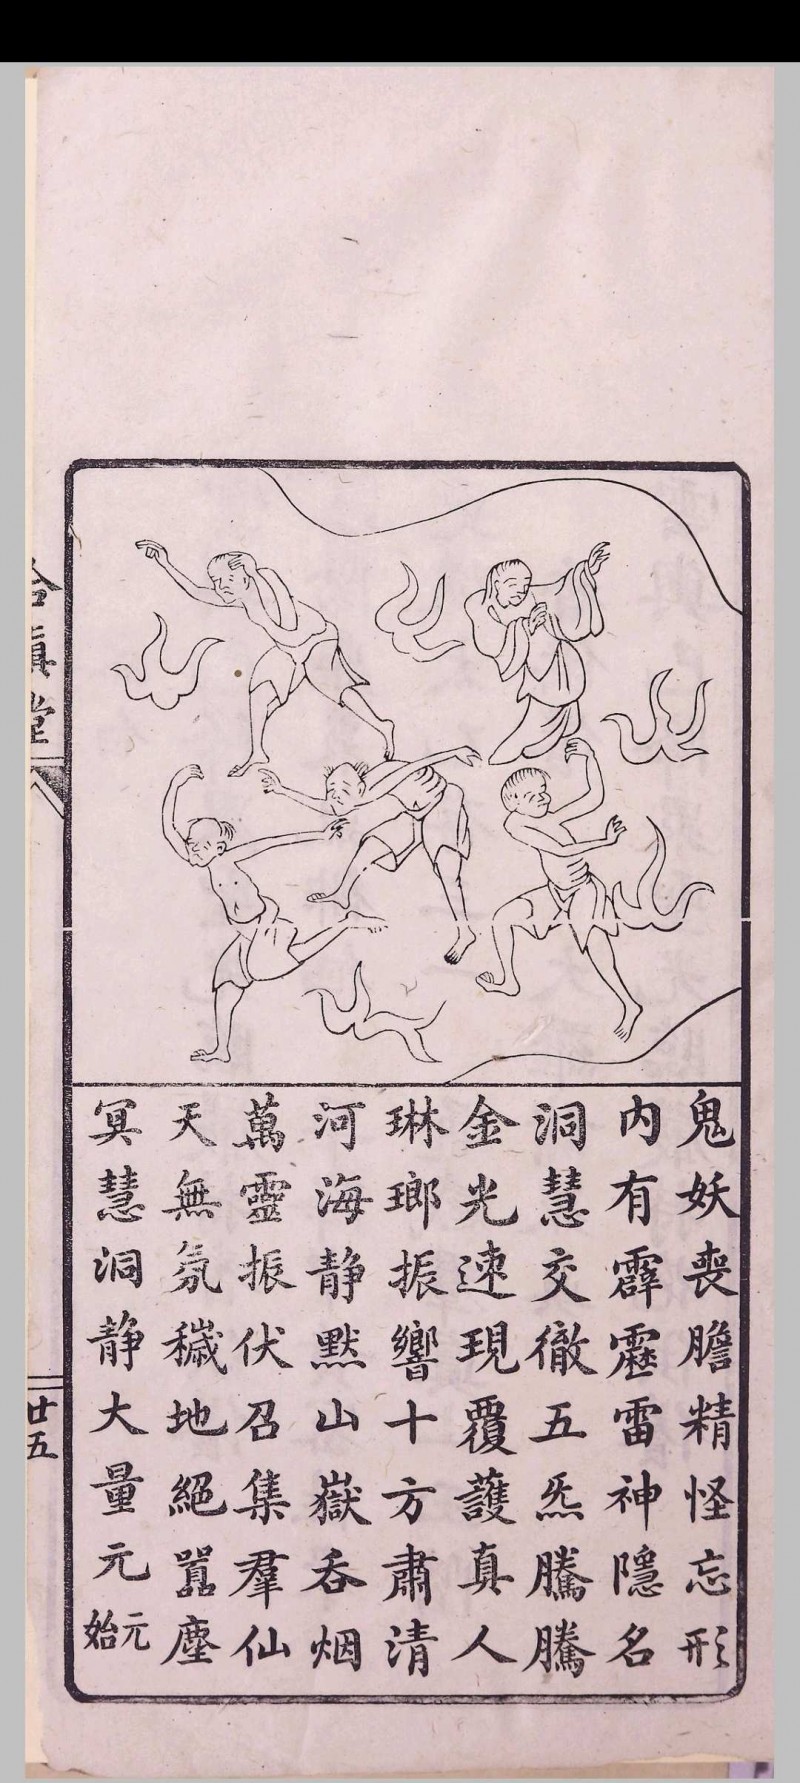 鬼妖喪膽精怪忘形
内有霹靂雷神隱名
洞慧交徹五炁騰騰
金光速現覆護真人
琳瑯振響十方肅清
河海静默山嶽吞烟
萬靈振伏召集羣仙
天無氛穢地絕嚣塵
冥慧洞静大量元元始
廿五